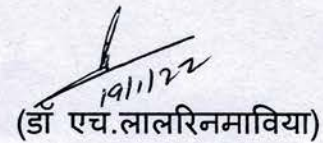 19/1/22
(डॉ एच.लालरिनमाविया)